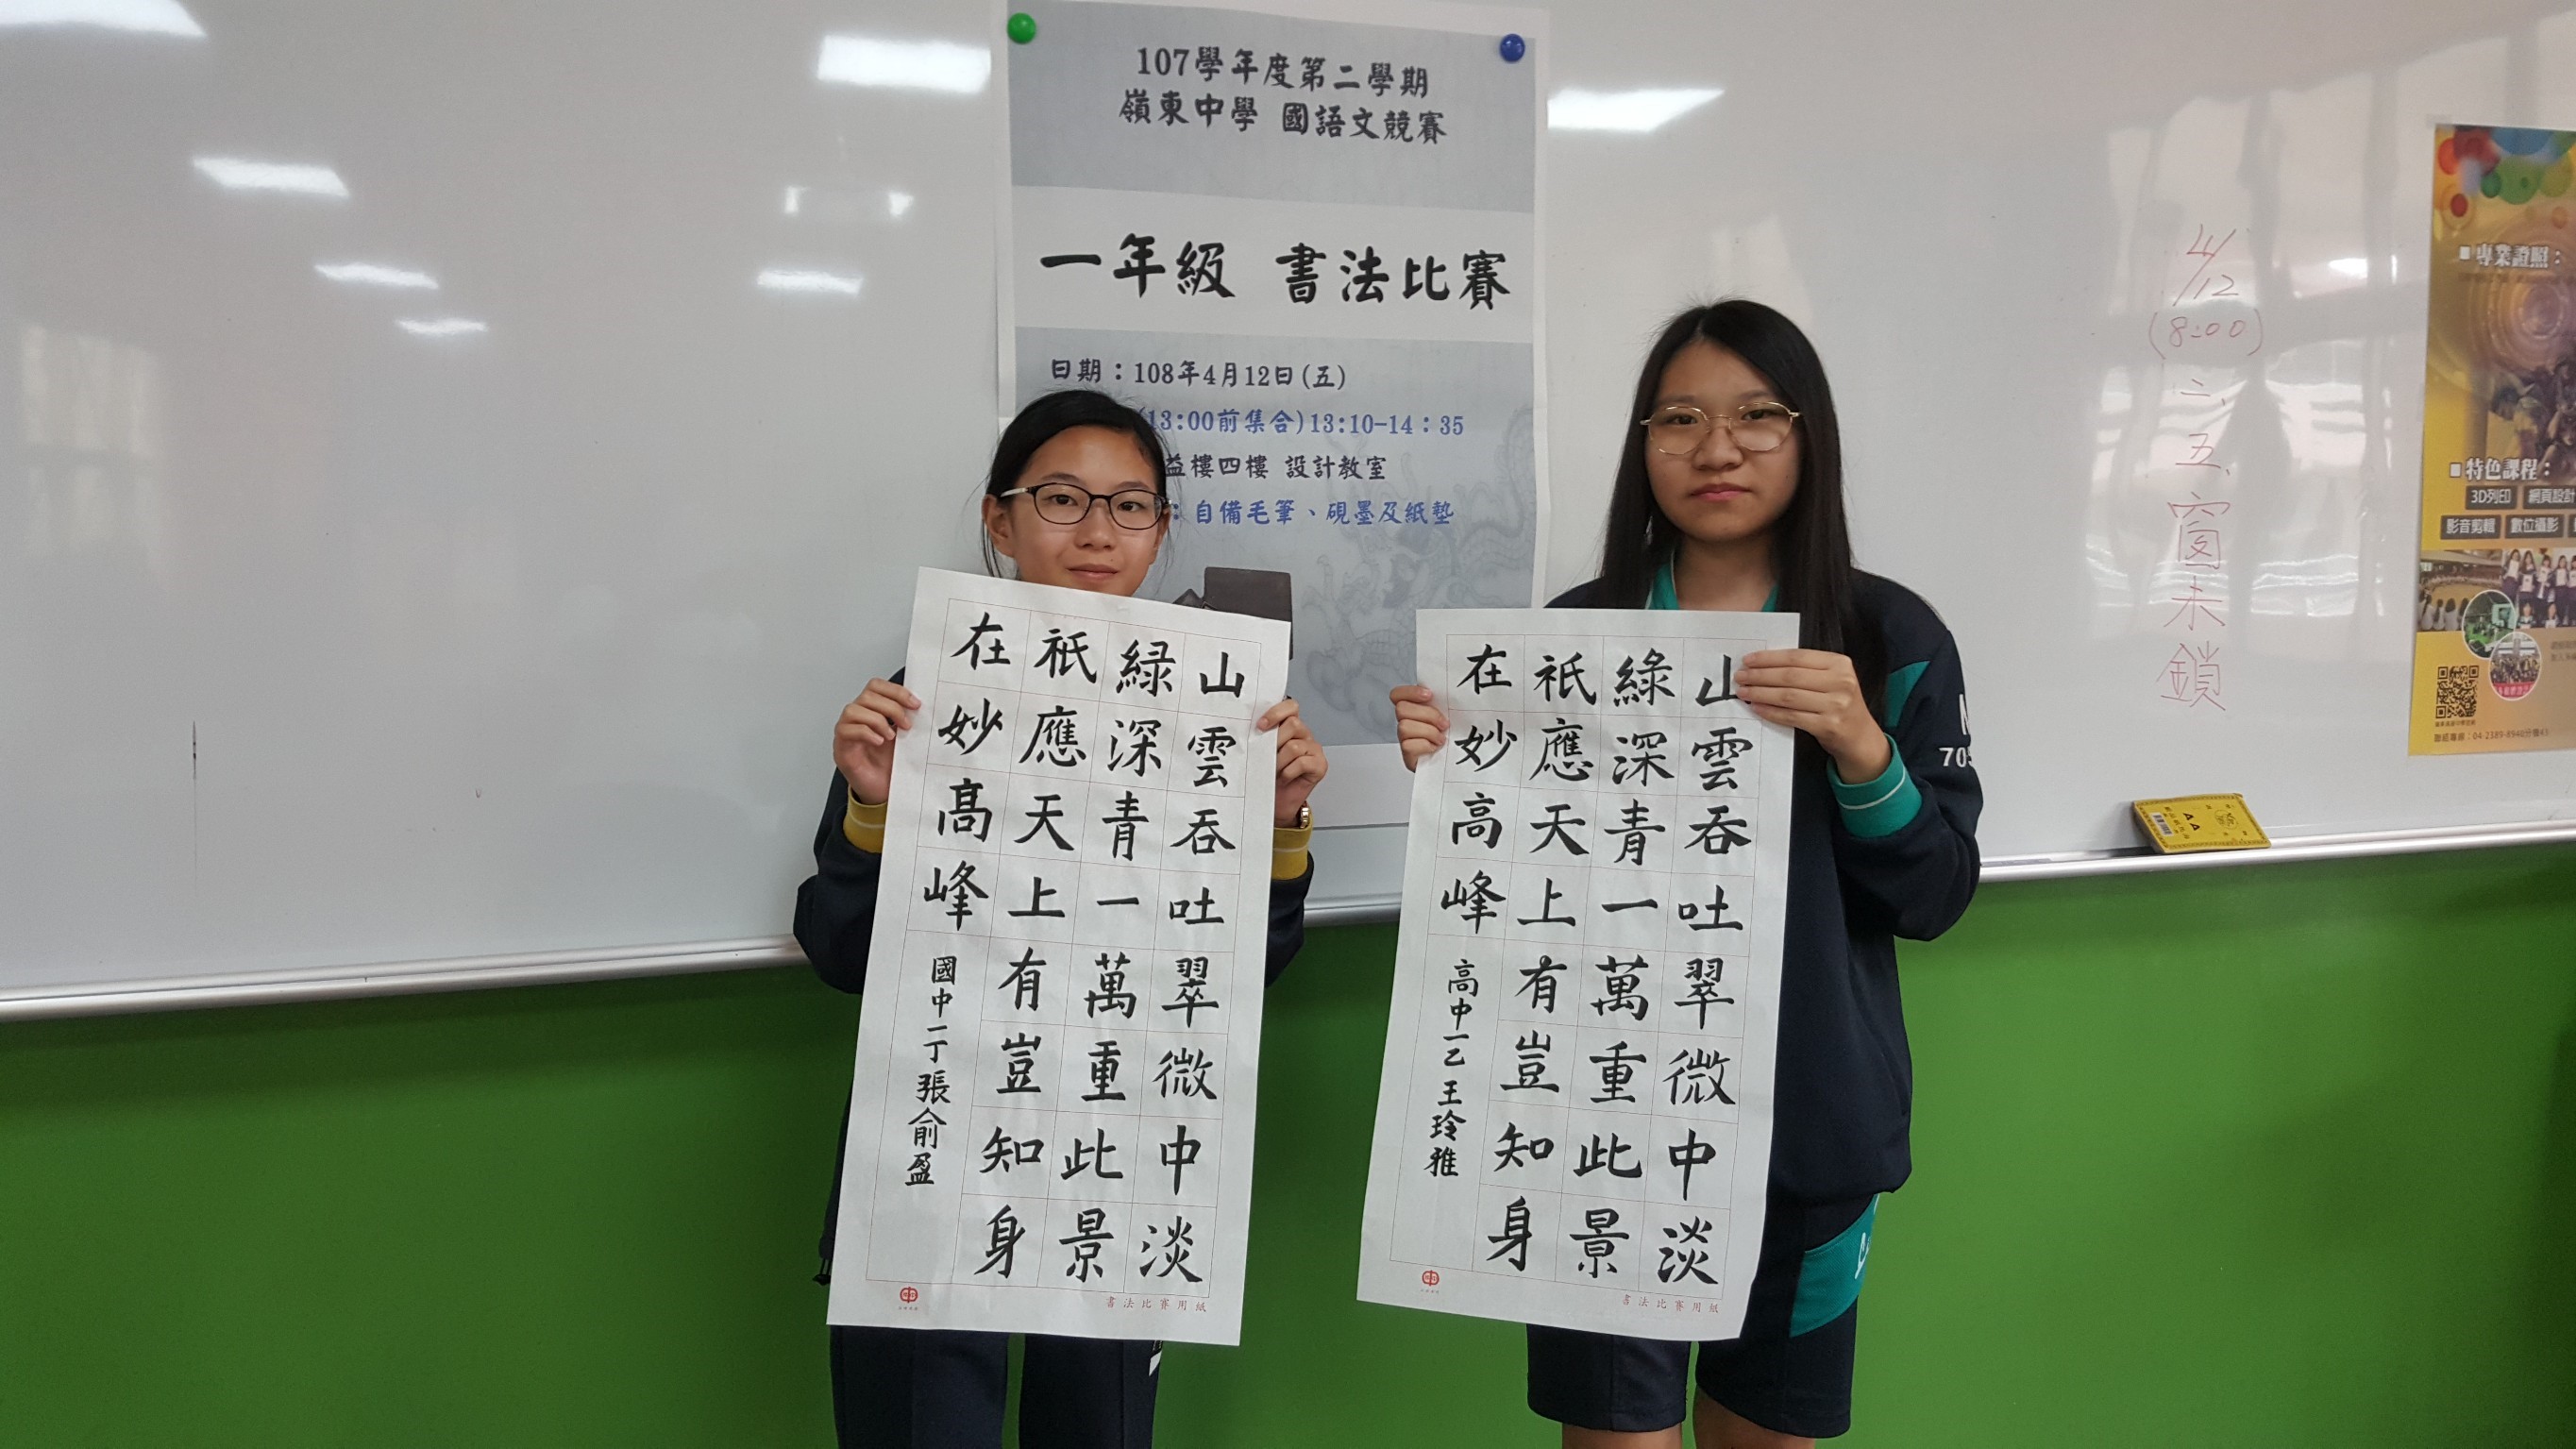 107學年度第二學期
嶺東中學 國語文競賽
一年級 書法比賽
日期：108年4月12日(五)
(13:00前集合)13:10-14：35
益樓四樓 設計教室
：自備毛筆、硯墨及紙墊
山雲吞吐翠微中淡
綠深青一萬重此景
祇應天上有豈知身
在妙高峰
國中一丁 張俞盈
書法比賽用紙
山雲吞吐翠微中淡
綠深青一萬重此景
祇應天上有豈知身
在妙高峰
高中一乙 王玲雅
書法比賽用紙
705
4/12
(8:00)
二、五、窗未鎖
■專業證照：
■特色課程：
3D列印 網頁設計
影音剪輯 數位攝影